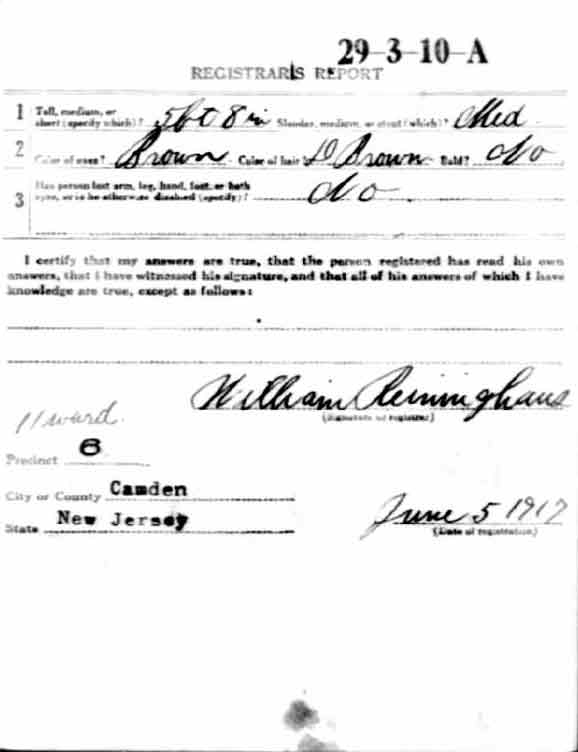 29-3-10-A
REGISTRAR'S REPORT
1 Tall, medium, or
short (specify which)? 5 ft 8 in Slender, medium, or stout (which)? Med.
2 Color of eyes? Brown Color of hair? D Brown Bald? No
3 Has person lost arm, leg, hand, foot, or both
eyes, or is he otherwise disabled (specify)? No
I certify that my answers are true, that the person registered has read his own
answers, that I have witnessed his signature, and that all of his answers of which I have
knowledge are true, except as follows:
William Reininghaus
(Signature of registrar)
11 ward.
Precinct 6
City or County Camden
State New Jersey
June 5 1917
(Date of registration)